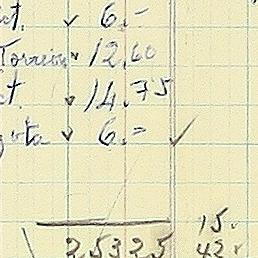 ct. ✓ 6.-
Torreon ✓ 12.60
ct. ✓ 14.75
ota ✓ 6.= ✓
15.
25325 42